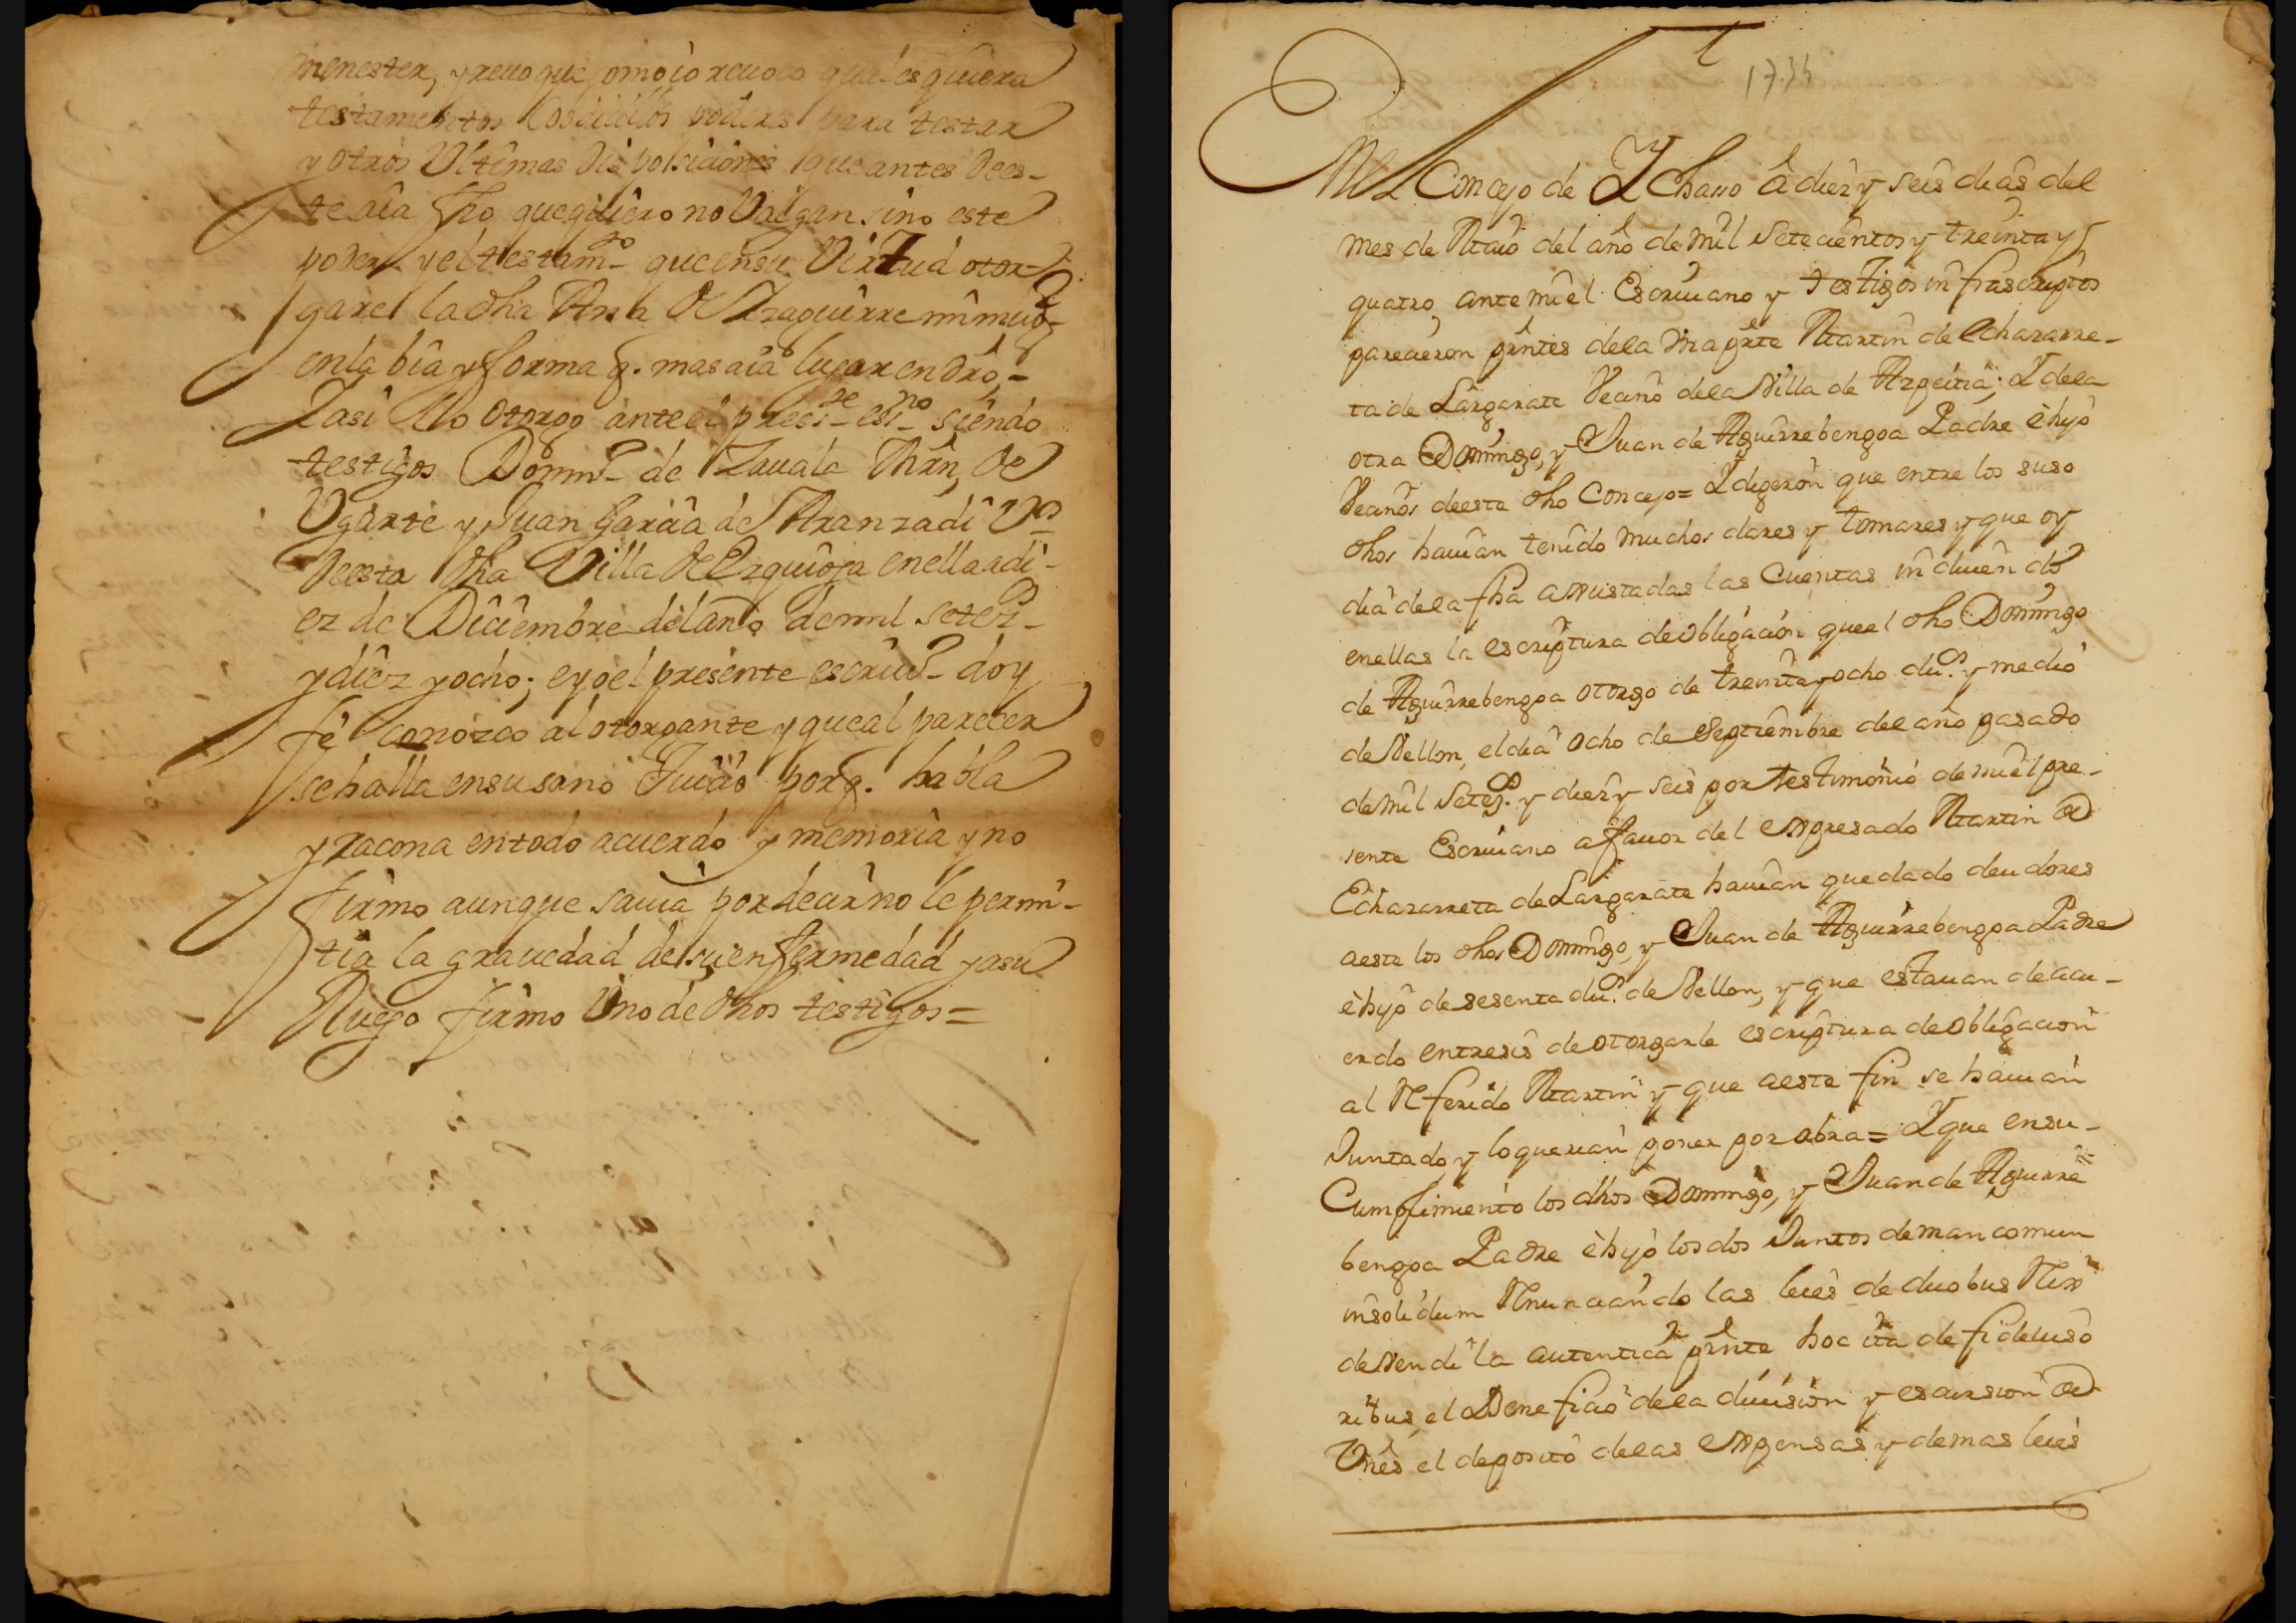 menester, y reuoque, como io reuoco qualesquiera
testamentos Cobdicillos poderes para testar
y otros Ultimas Dispossiciones que antes de es-
te aia fho que quiero no Valgan sino este
poder y el testam.to que en su Virtud otor-
gare la dha Ana de Yzaguirre mi muger
en la bia y forma q. mas aia lugar en dro,-
Y asi lo otorgo ante el pres.te es.no siendo
testigos Domin.o de Zauala Mrn, de
Ugarte y Juan Garcia de Aranzadi V.os
de esta dha Villa de Ezquioga en ella a di-
ez de Diciembre del año de mil setez.os
y diez y ocho; e yo el presente escriu.o doy
fe conozco al otorgante y que al parecer
se halla en su sano Juicio por q. habla
y racona en todo acuerdo y memoria y no
firmo aunque sauia por decir no le permi-
tia la grauedad de su enfermedad y a su
Ruego firmo Uno de dhos testigos =
1734
En el Concejo de Ychaso â diez y seis dias del
mes de Maio del año de mil Setecientos y treinta y
quatro, ante mi el Escriuano y testigos infrascriptos
parecieron pressntes de la Vna parte Martin de Echazarre-
ta de Largarate Vecino de la Villa de Azpeitia; Y de la
otra Domingo, y Juan de Aguirrebengoa Padre è hijo
Vecinos de este dho Concejo = Y digeron que entre los suso
dhos hauian tenido muchos dares y tomares y que oy
dia de la fha ajustadas las Cuentas incluiendo
en ellas la escriptura de obligacion que el dho Domingo
de Aguirrebengoa otorgo de treinta y ocho du.s y medio
de Vellon, el dia ocho de Septiembre del año pasado
de mil Setez.s y diez y seis por testimonio de mi el pre-
sente Escriuano a fauor del expresado Martin de
Echazarreta de Largarate hauian quedado deudores
a este los dhos Domingo, y Juan de Aguirrebengoa Padre
è hijo de sesenta du.s de Vellon, y que estauan de acu-
erdo entre sis de otorgarle escriptura de obligacion
al Referido Martin y que a este fin se hauian
Juntado y lo querian poner por obra = Y que en su-
Cumplimiento los dhos Domingo, y Juan de Aguirre
bengoa Padre è hijo los dos Juntos de mancomun
insolidum Renunciando las leies de duobus Rex
de vendi la autentica presente hoc ita de fideiuso
ribus, el Beneficio de la diuision y escursion de
Vnes el deposito de las expensas y demas leies